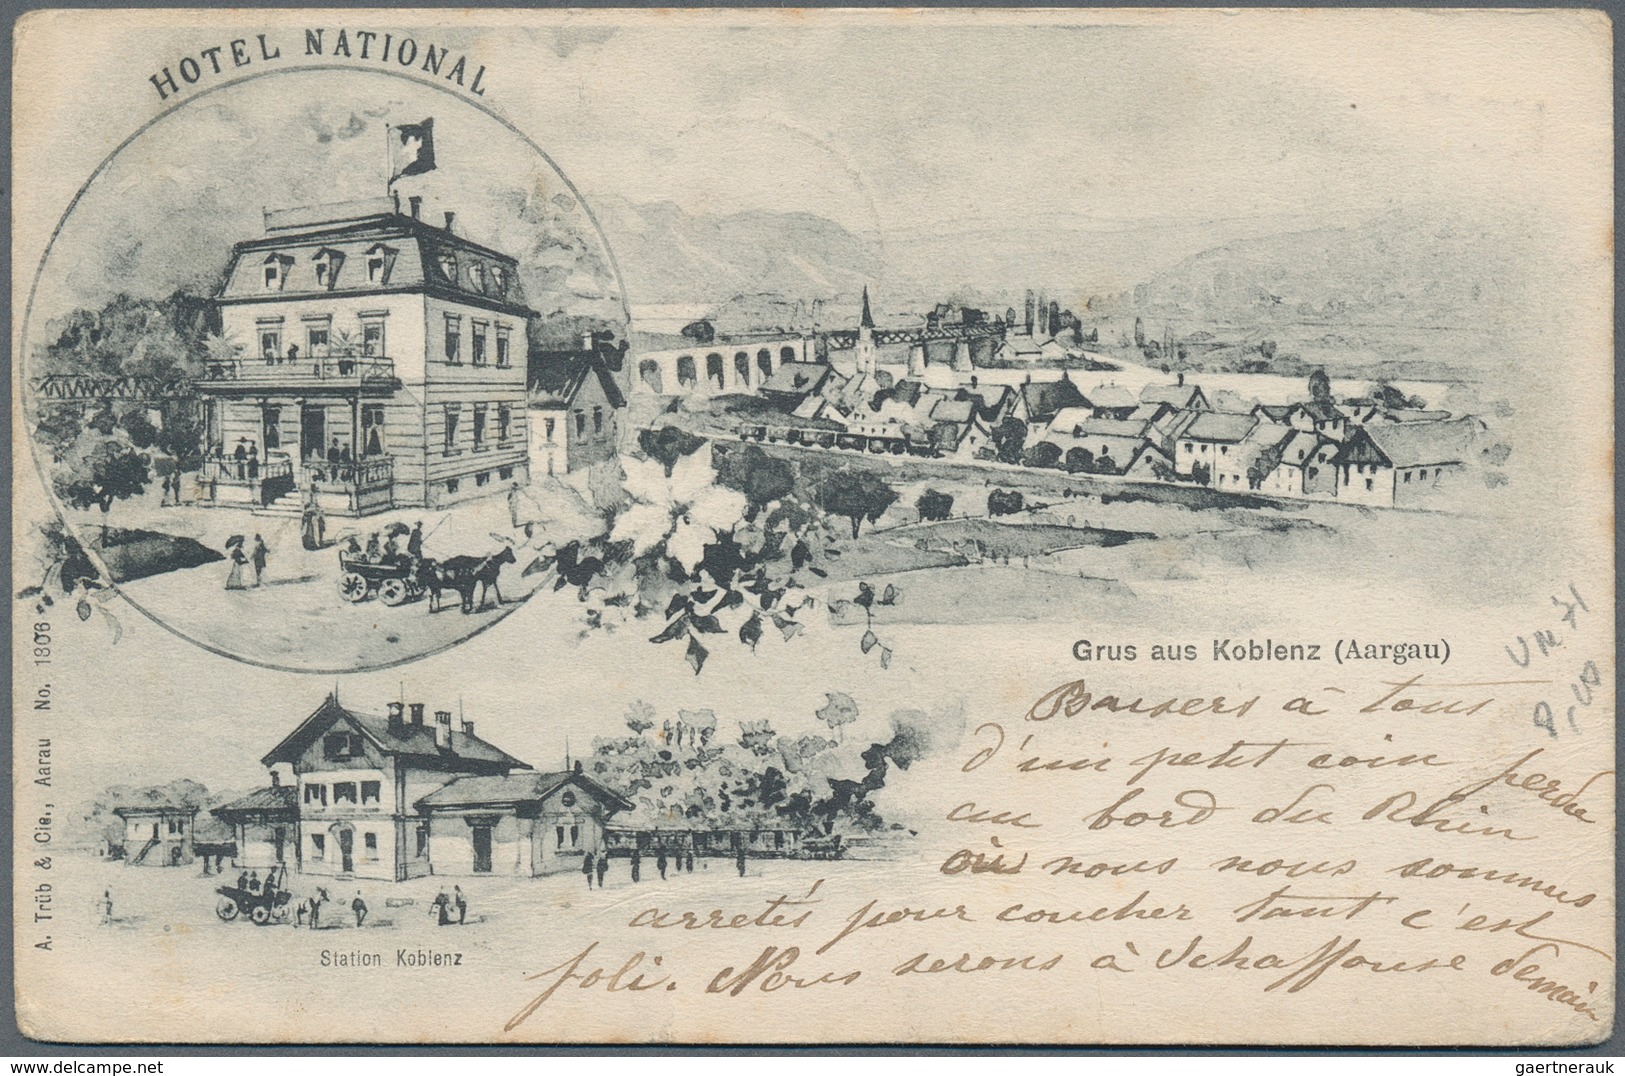 HOTEL NATIONAL
Grus aus Koblenz (Aargau)
Baisers à tous
d'un petit coin perdu
au bord du Rhin
où nous nous sommes
arretés pour coucher tant c'est
joli. Nous serons à Schaffouse demain
Station Koblenz
A. Trüb & Cie., Aarau No. 1806
gaertnerauk